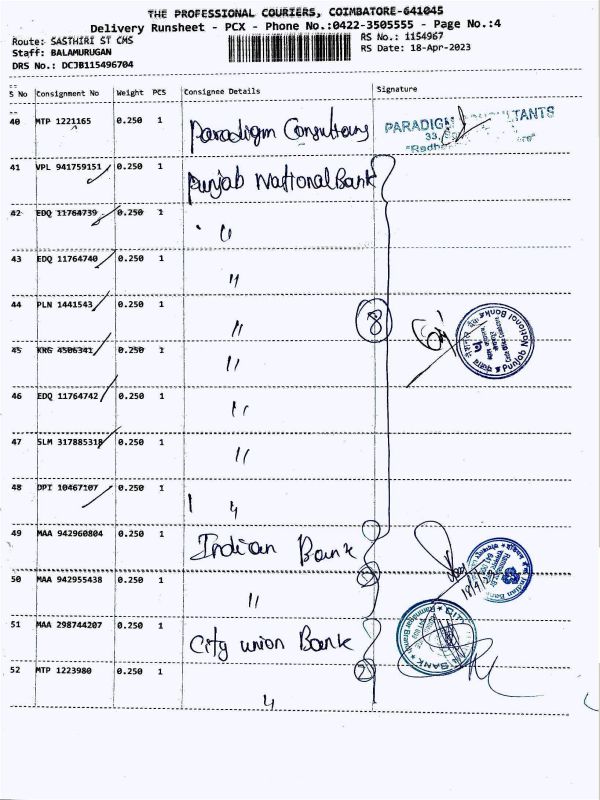 THE PROFESSIONAL COURIERS, COIMBATORE-641045
Delivery Runsheet - PCX - Phone No.:0422-3505555 - Page No.:4
Route: SASTHIRI ST CMS
Staff: BALAMURUGAN
DRS No.: DCJB115496704
RS No.: 1154967
RS Date: 18-Apr-2023
S No Consignment No Weight PCS Consignee Details Signature
40 MTP 1221165 0.250 1 Paradigm Consultans PARADIGM CONSULTANTS
33,
41 VPL 941759151 0.250 1 Punjab National Bank
42 EDQ 11764739 0.250 1 "
43 EDQ 11764740 0.250 1 "
44 PLN 1441543 0.250 1 " 8
Punjab National Bank
45 KRG 4506341 0.250 1 "
46 EDQ 11764742 0.250 1 "
47 SLM 317885318 0.250 1 "
48 DPI 10467107 0.250 1 "
49 MAA 942960804 0.250 1 Indian Bank
50 MAA 942955438 0.250 1 "
Indian Bank
51 MAA 298744207 0.250 1 City union Bank
52 MTP 1223980 0.250 1 " 2
CITY BANK
Ramnagar Branch